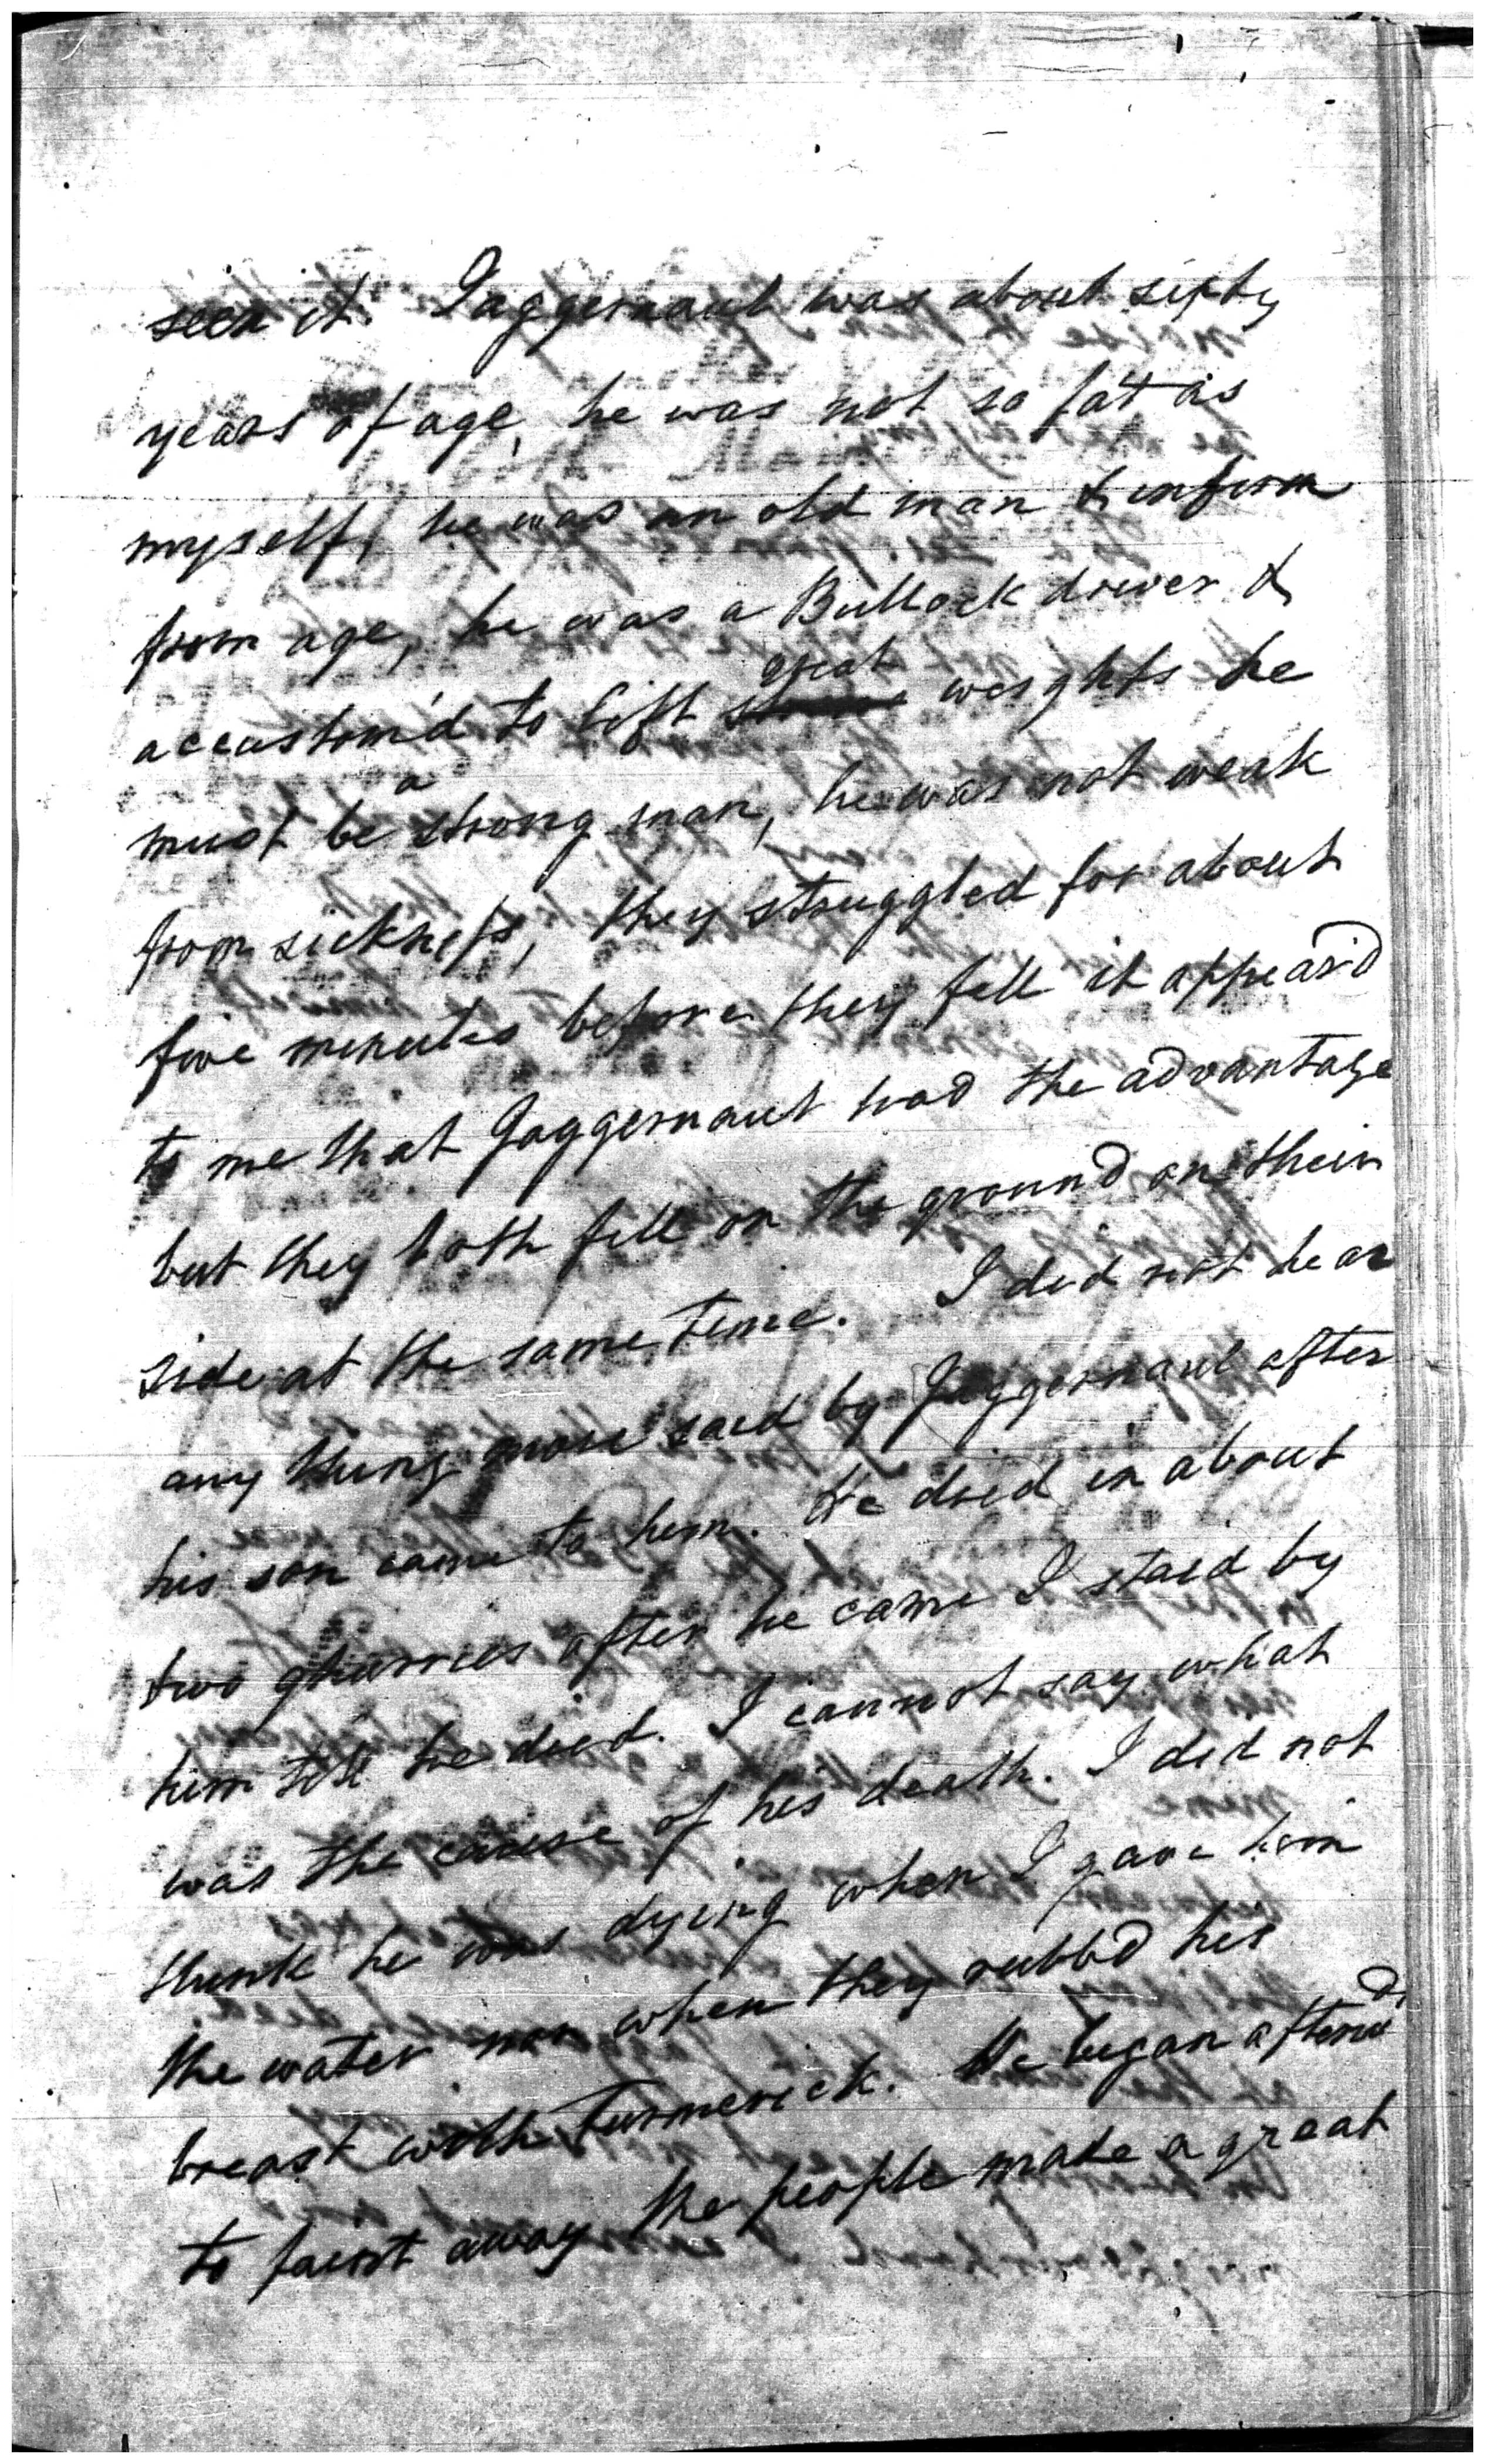 seen it. Jaggernaut was about sixty
years of age, he was not so fat as
myself, he was an old man & infirm
from age, he was a Bullock driver &
accustom'd to lift great weights he
must be a strong man, he was not weak
from sickness, they struggled for about
five minutes before they fell it appear'd
to me that Jaggernaut had the advantage
but they both fell on the ground on their
side at the same time. I did not hear
any thing more said by Jaggernaut after
his son came to him. He died in about
two ghurries after he came I staid by
him till he died. I cannot say what
was the cause of his death. I did not
think he was dying when I gave him
the water nor when they rubbd his
breast with Turmerick. He began afterwds
to faint away the people made a great